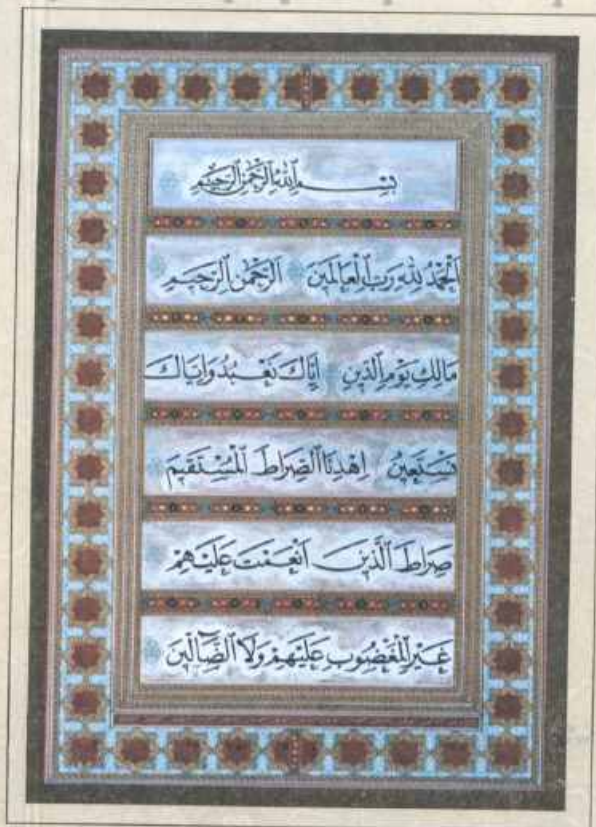 بِسْمِ ٱللَّهِ ٱلرَّحْمَٰنِ ٱلرَّحِيمِ
ٱلْحَمْدُ لِلَّهِ رَبِّ ٱلْعَالَمِينَ ٱلرَّحْمَٰنِ ٱلرَّحِيمِ
مَالِكِ يَوْمِ ٱلدِّينِ اِيَّاكَ نَعْبُدُ وَاِيَّاكَ
نَسْتَعِينُ اِهْدِنَا ٱلصِّرَاطَ ٱلْمُسْتَقِيمَ
صِرَاطَ ٱلَّذِينَ اَنْعَمْتَ عَلَيْهِمْ
غَيْرِ ٱلْمَغْضُوبِ عَلَيْهِمْ وَلَا ٱلضَّآلِّينَ